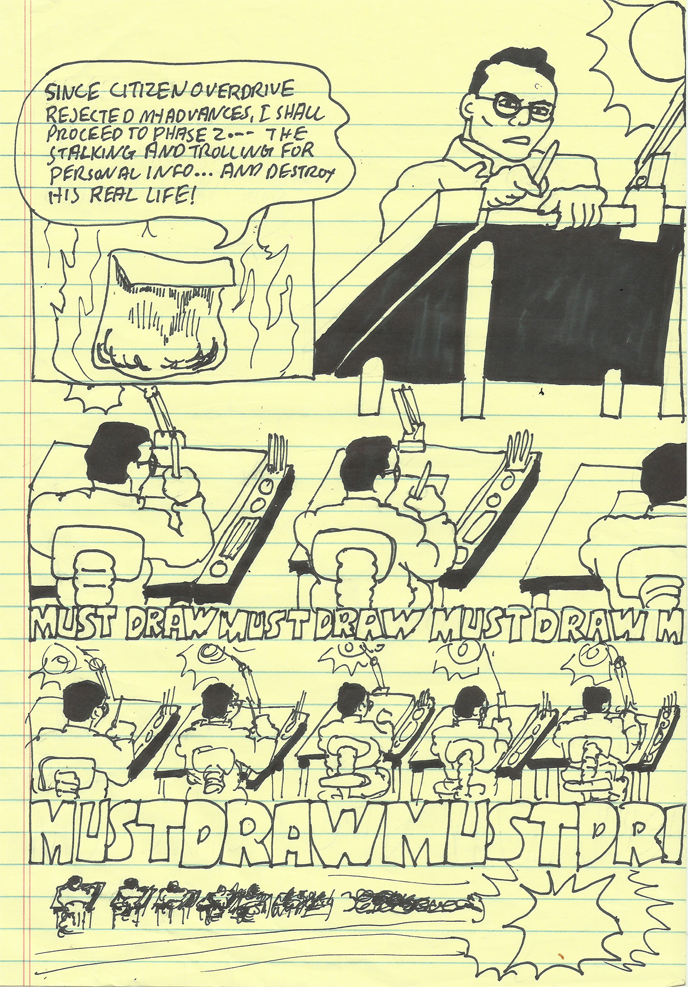 SINCE CITIZEN OVERDRIVE
REJECTED MY ADVANCES, I SHALL
PROCEED TO PHASE 2... THE
STALKING AND TROLLING FOR
PERSONAL INFO... AND DESTROY
HIS REAL LIFE!
MUST DRAW MUST DRAW MUST DRAW M
MUSTDRAWMUSTDR